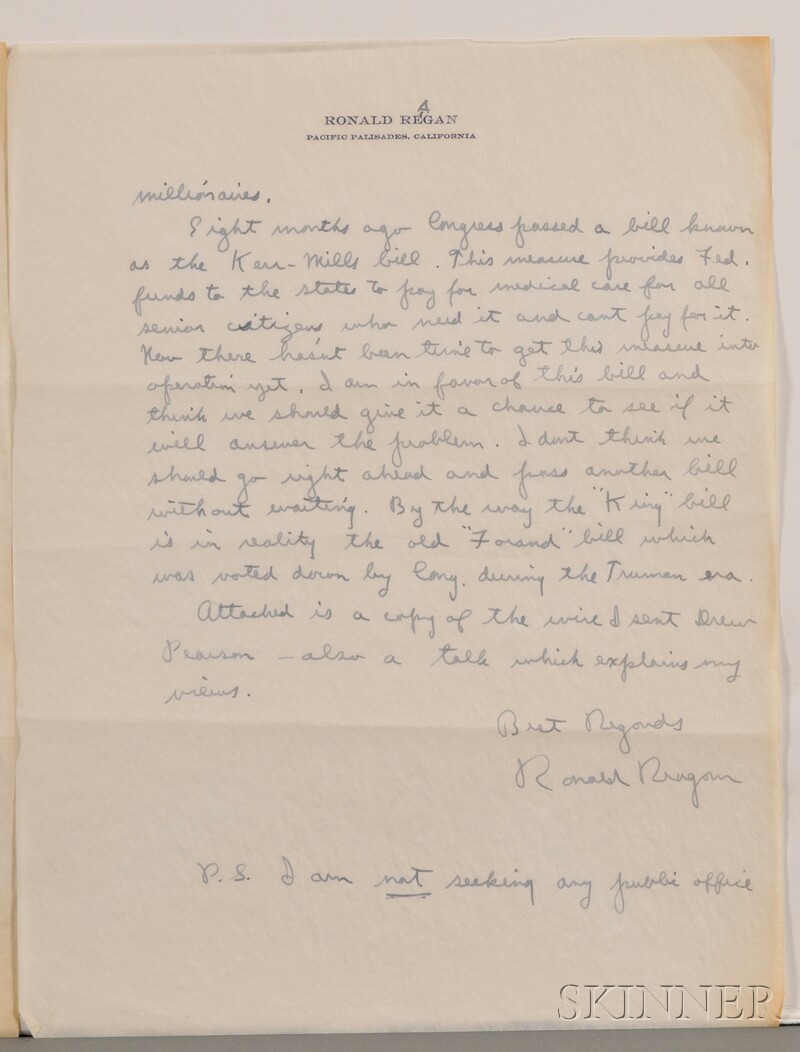 A
RONALD REGAN
PACIFIC PALISADES, CALIFORNIA
millionaires.
Eight months ago Congress passed a bill known
as the Kerr-Mills bill. This measure provides Fed.
funds to the states to pay for medical care for all
senior citizens who need it and cant pay for it.
Now there hasn't been time to get this measure into
operation yet. I am in favor of this bill and
think we should give it a chance to see if it
will answer the problem. I dont think we
should go right ahead and pass another bill
without waiting. By the way the "King" bill
is in reality the old "Forand" bill which
was voted down by Cong. during the Truman era.
Attached is a copy of the wire I sent Drew
Pearson – also a talk which explains my
views.
Best Regards
Ronald Reagan
P.S. I am not seeking any public office
SKINNER